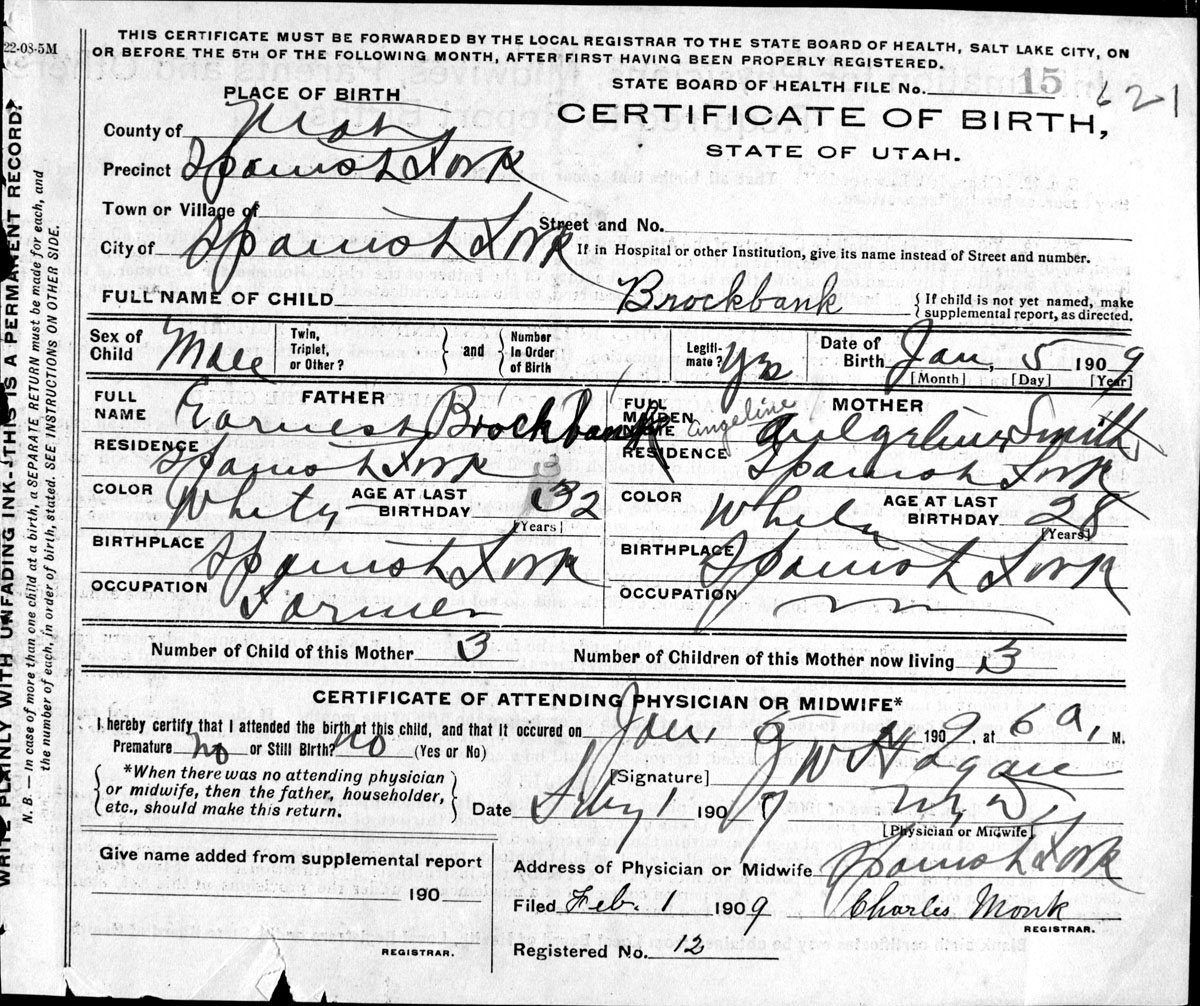 22-08-5M
THIS CERTIFICATE MUST BE FORWARDED BY THE LOCAL REGISTRAR TO THE STATE BOARD OF HEALTH, SALT LAKE CITY, ON
OR BEFORE THE 5TH OF THE FOLLOWING MONTH, AFTER FIRST HAVING BEEN PROPERLY REGISTERED.
STATE BOARD OF HEALTH FILE No. 15 621
PLACE OF BIRTH
CERTIFICATE OF BIRTH,
STATE OF UTAH.
County of Utah
Precinct Spanish Fork
Town or Village of
Street and No.
City of Spanish Fork
If in Hospital or other Institution, give its name instead of Street and number.
FULL NAME OF CHILD Brockbank
{ If child is not yet named, make
supplemental report, as directed.
Sex of Child Male
Twin, Triplet, or Other? } and { Number In Order of Birth
Legiti-mate? Yes
Date of Birth Jan, 5 1909
[Month] [Day] [Year]
FATHER
FULL NAME Earnest Brockbank
RESIDENCE Spanish Fork
COLOR White
AGE AT LAST BIRTHDAY 32
[Years]
BIRTHPLACE Spanish Fork
OCCUPATION Farmer
MOTHER
FULL MAIDEN NAME Angeline Smith
RESIDENCE Spanish Fork
COLOR White
AGE AT LAST BIRTHDAY 28
[Years]
BIRTHPLACE Spanish Fork
OCCUPATION
Number of Child of this Mother 3
Number of Children of this Mother now living 3
CERTIFICATE OF ATTENDING PHYSICIAN OR MIDWIFE*
I hereby certify that I attended the birth of this child, and that it occured on Jan, 5 1909, at 6 a, M.
Premature no or Still Birth? no (Yes or No)
{ *When there was no attending physician
or midwife, then the father, householder,
etc., should make this return. }
[Signature]
Date Feby 1 1909 M D,
[Physician or Midwife]
Give name added from supplemental report
190
REGISTRAR.
Address of Physician or Midwife Spanish Fork
Filed Feb. 1 1909 Charles Monk
REGISTRAR.
Registered No. 12
WRITE PLAINLY WITH UNFADING INK--THIS IS A PERMANENT RECORD.
N. B.— In case of more than one child at a birth, a SEPARATE RETURN must be made for each, and
the number of each, in order of birth, stated. SEE INSTRUCTIONS ON OTHER SIDE.